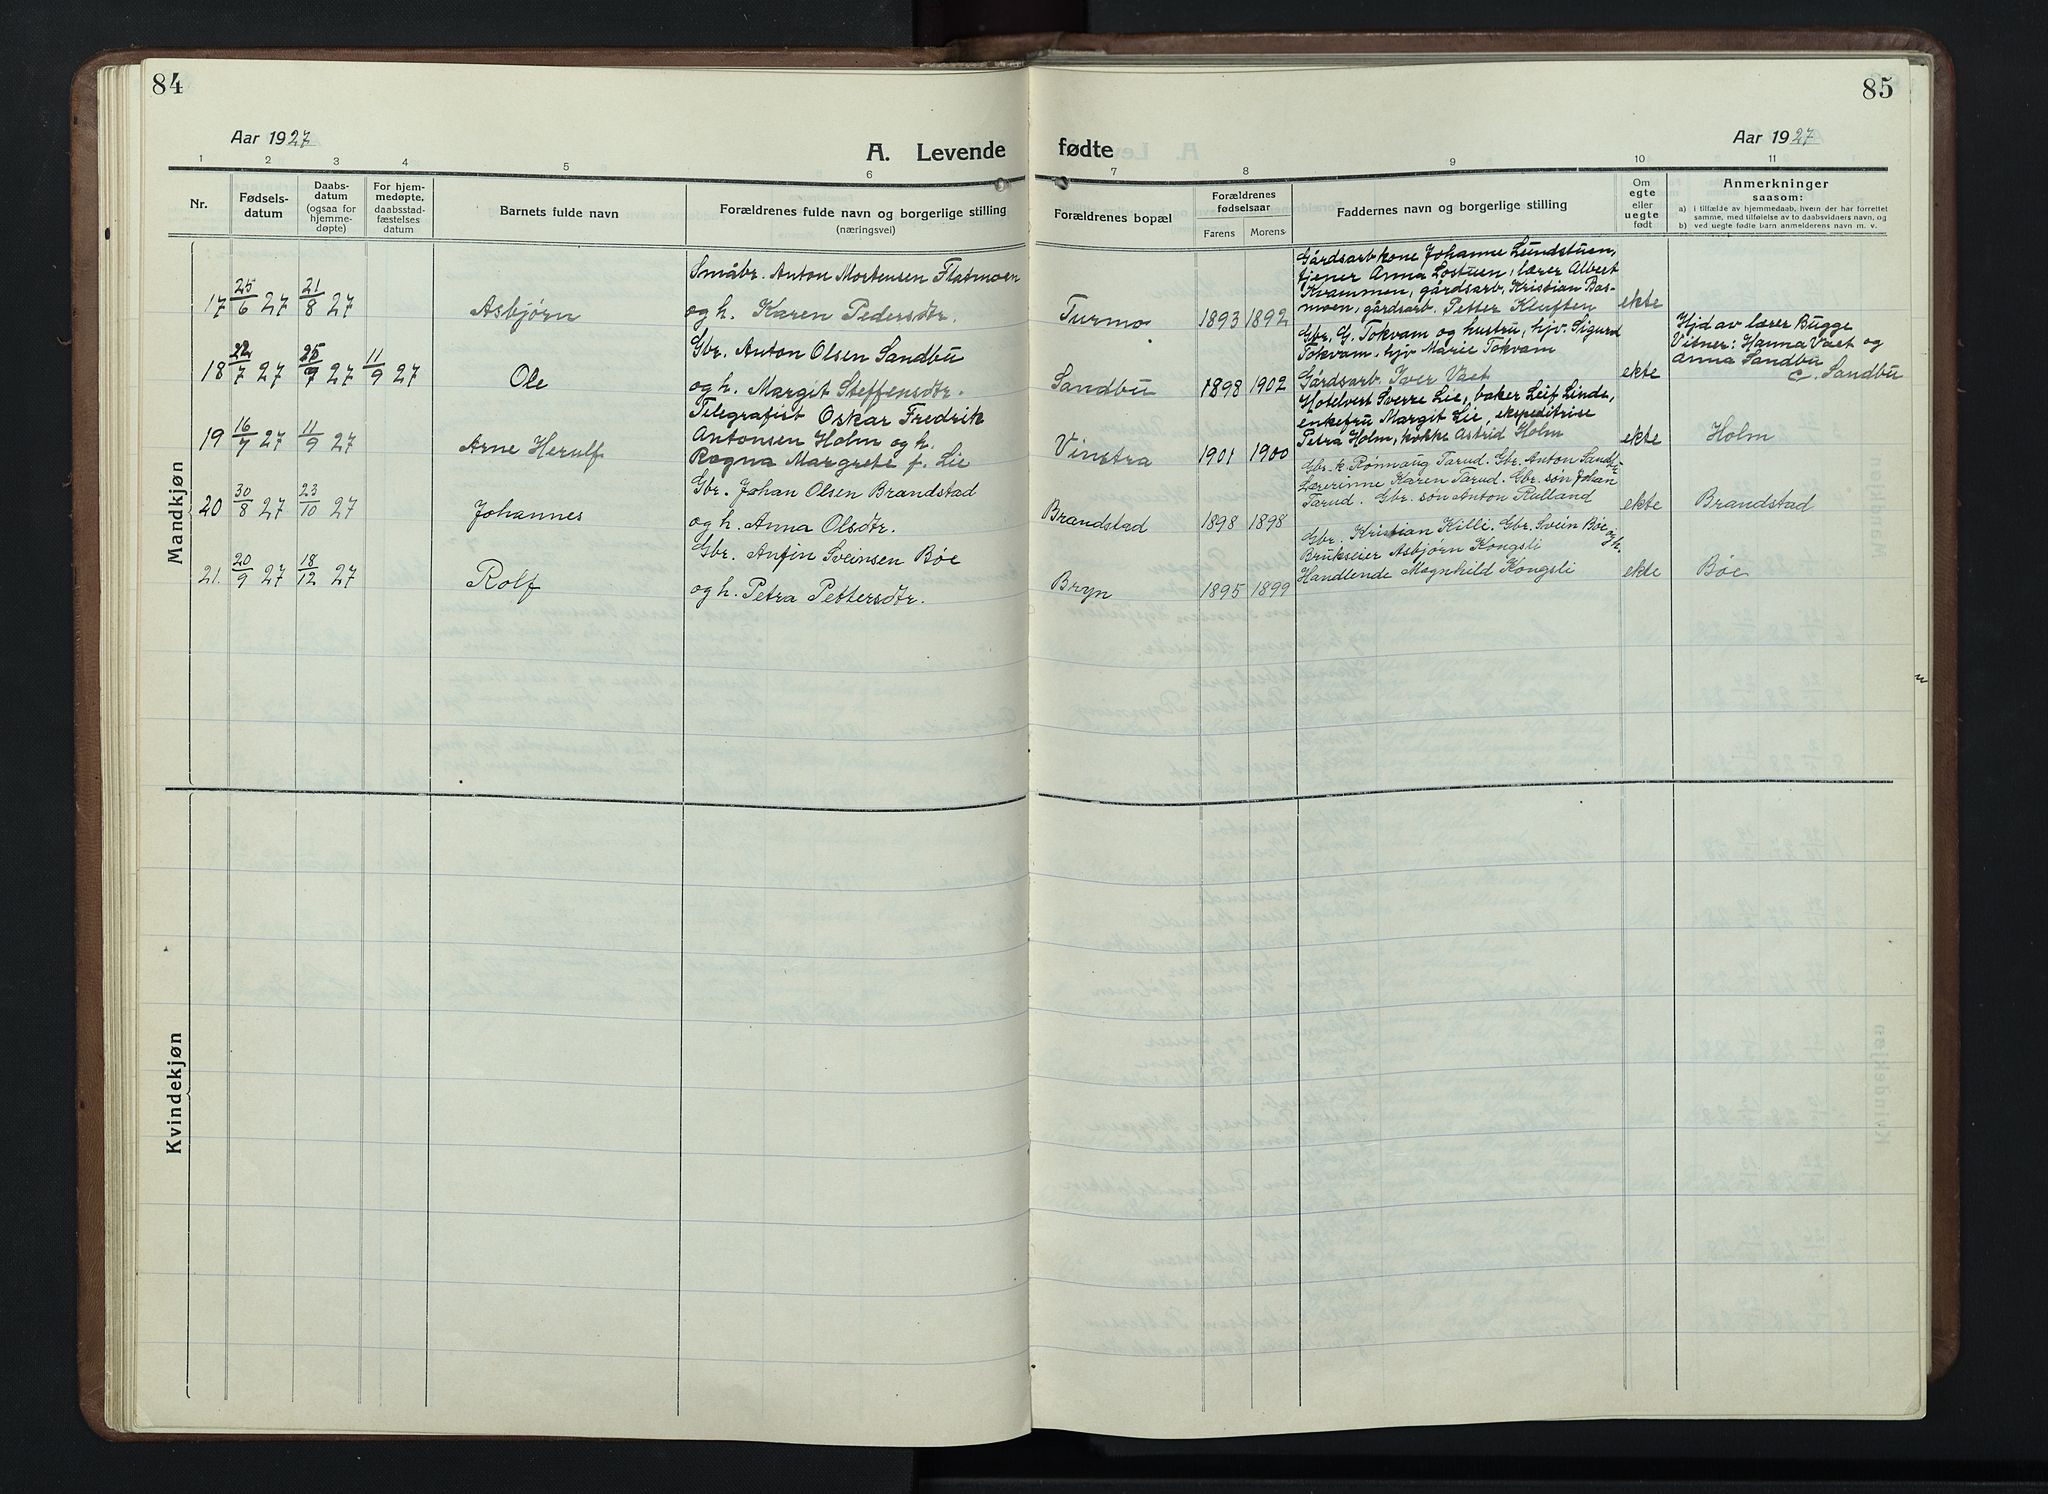 84
Aar 1927
A. Levende
1 2 3 4 5 6
Nr.
Fødsels-
datum
Daabs-
datum
(ogsaa for
hjemme-
døpte)
For hjem-
medøpte,
daabsstad-
fæstelses
datum
Barnets fulde navn
Forældrenes fulde navn og borgerlige stilling
(næringsvei)
Mandkjøn
17 25/6 27 21/8 27 Asbjørn
Småbr. Anton Mortensen Flatmoen
og h. Karen Pedersdtr.
18 22/7 27 25/7 27 11/9 27 Ole
Gbr. Anton Olsen Sandbu
og h. Margit Steffensdtr.
19 16/7 27 11/9 27 Arne Herulf
Telegrafist Oskar Fredrik
Antonsen Holm og h.
Ragna Margrete f. Lie
20 30/8 27 23/10 27 Johannes
Gbr. Johan Olsen Brandstad
og h. Anna Olsdtr.
21. 20/9 27 18/12 27 Rolf
Gbr. Anfin Sveinsen Bøe
og h. Petra Pettersdtr.
Kvindekjøn
85
Aar 1927
fødte
7 8 9 10 11
Forældrenes bopæl
Forældrenes
fødselsaar
Farens Morens
Faddernes navn og borgerlige stilling
Om
egte
eller
uegte
født
Anmerkninger
saasom:
a) i tilfælde av hjemmedaab, hvem der har forrettet
samme, med tilføielse av to daabsvidners navn, og
b) ved uegte fødte barn anmelderens navn m. v.
Turmo 1893 1892
Gårdsarb kone Johanne Lundstuen,
tjener Anna Lostuen, lærer Albert
Kvammen, gårdsarb. Kristian Bas-
moen, gårdsarb. Petter Kluften
ekte
Sandbu 1898 1902
Gbr. G. Tokvam og hustru, hjv. Sigurd
Tokvam, hjv Marie Tokvam
Gårdsarb. Iver Vaet
ekte
Hjd av lærer Bugge
Vitner: Hanna Vaet og
Anna Sandbu
Sandbu
Vinstra 1901 1900
Hotelvert Sverre Lie, baker Leif Linde,
enkefru Margit Lie, ekspeditrise
Petra Holm, kokke Astrid Holm
ekte Holm
Brandstad 1898 1898
Gbr. k. Rønnaug Tarud. Gbr. Anton Sandbu
Lærerinne Karen Tarud. Gbr. søn Johan
Tarud. Gbr. søn Anton Rulland
ekte Brandstad
Bryn 1895 1899
Gbr. Kristian Killi. Gbr. Svein Bøe og h.
Brukseier Asbjørn Kongsli
Handlende Magnhild Kongsli
ekte Bøe